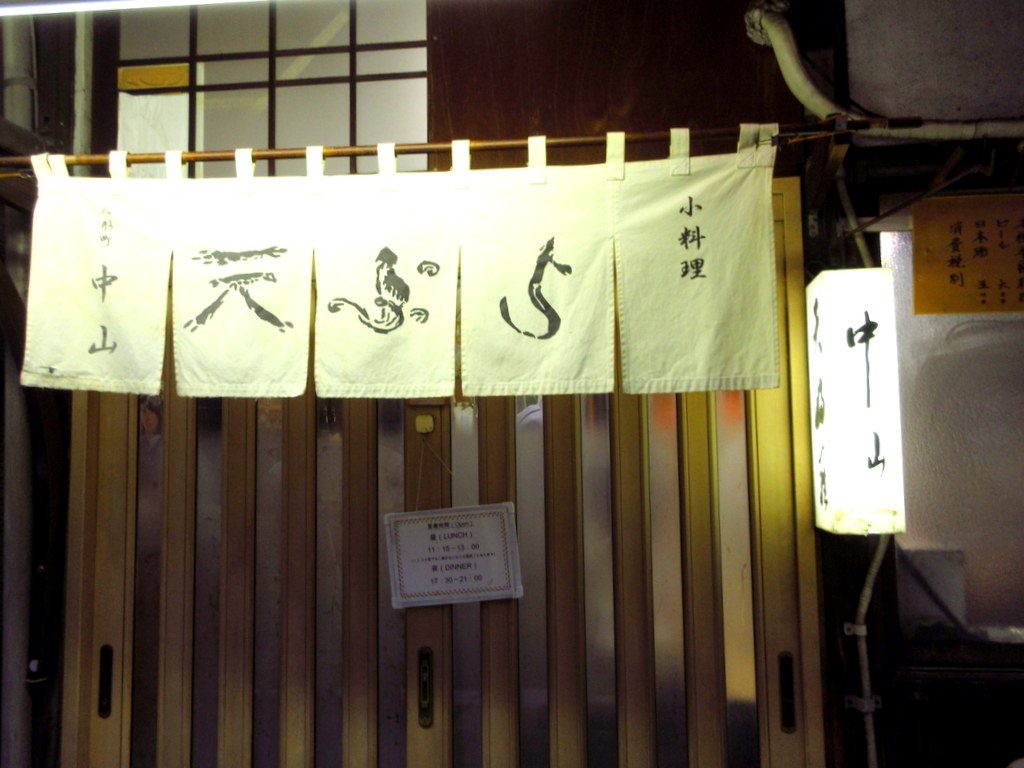 小料理
天ぷら
人形町
中山
中山
営業時間 (Open)
昼 (LUNCH)
11:15~13:00
夜 (DINNER)
17:30~21:00
ビール
日本酒
消費税別